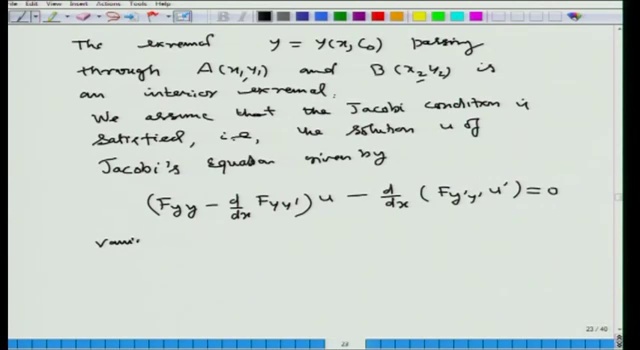 File Actions Tools Help
The extremal y = y(x, C₀) passing
through A(x₁, y₁) and B(x₂, y₂) is
an interior extremal.
We assume that the Jacobi condition is
satisfied, i.e, the solution u of
Jacobi's Equation given by
(Fyy − d/dx Fyy′) u − d/dx (Fy′y′ u′) = 0
vani
23 / 40
23